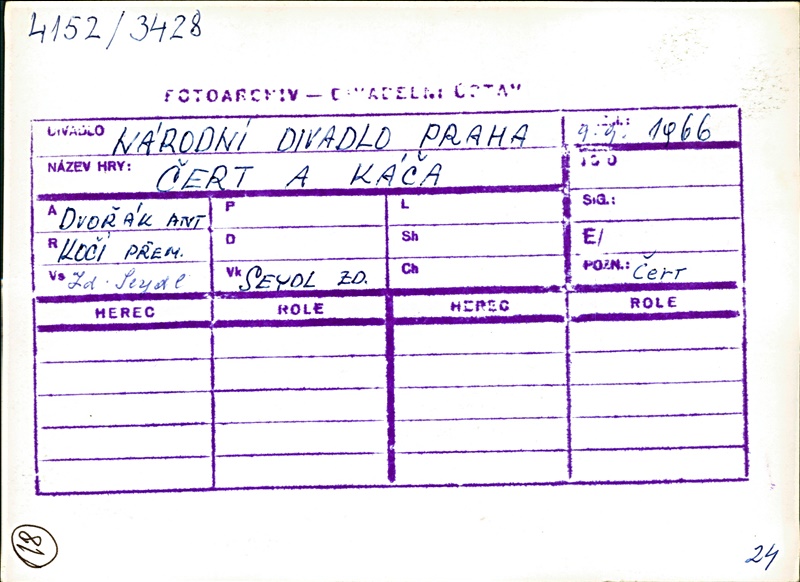 4152/3428
FOTOARCHIV — DIVADELNÍ ÚSTAV
DIVADLO NÁRODNÍ DIVADLO PRAHA 9.9. 1966
NÁZEV HRY: ČERT A KÁČA
A DVOŘÁK ANT P L SIG.:
R KOČÍ PŘEM. D Sh E/
Vs Zd. Seydl Vk SEYDL ZD. Ch POZN.: Čert
HEREC ROLE HEREC ROLE
18
24